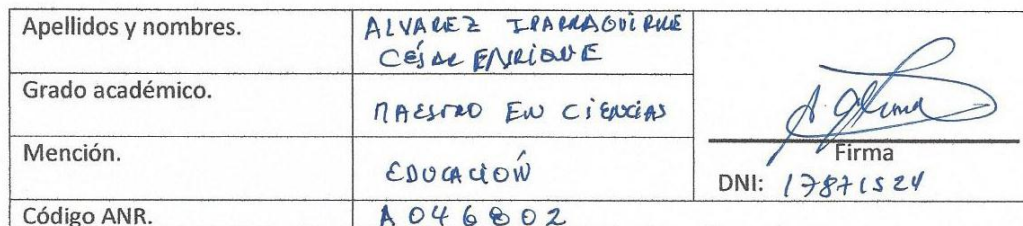 Apellidos y nombres.
ALVAREZ IPARRAGUIRRE
CÉSAR ENRIQUE
Grado académico.
MAESTRO EN CIENCIAS
Mención.
EDUCACIÓN
Firma
DNI: 17871524
Código ANR.
A046802